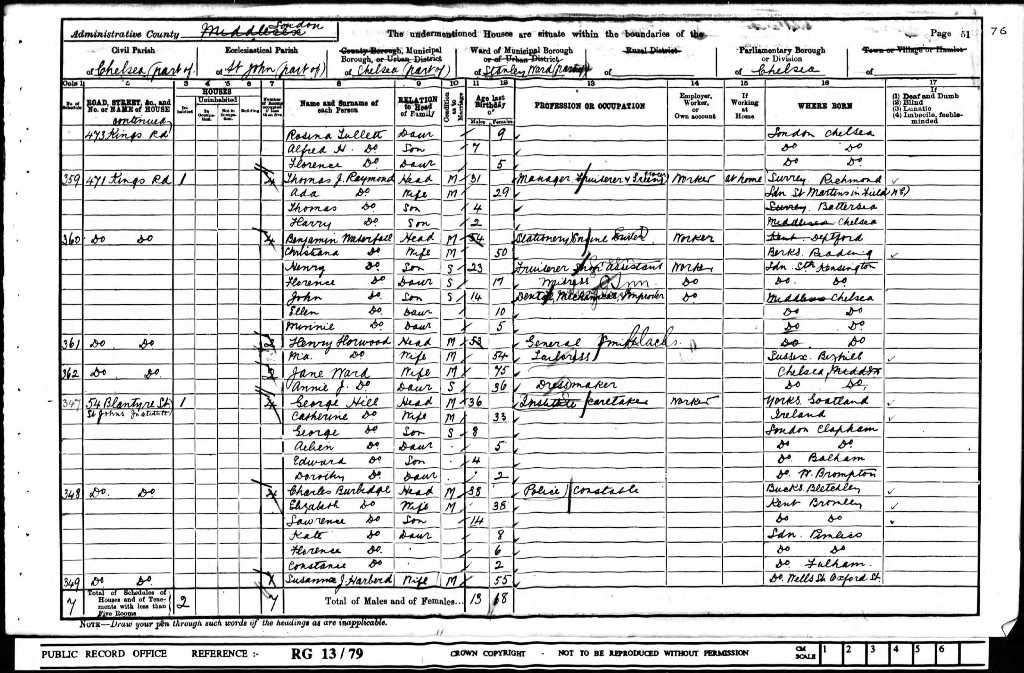 Administrative County Middlesex London The undermentioned Houses are situate within the boundaries of the Page 51 76
Civil Parish Ecclesiastical Parish County Borough, Municipal Borough, or Urban District Ward of Municipal Borough or of Urban District Rural District Parliamentary Borough or Division Town or Village or Hamlet
of Chelsea (part of) of St John (part of) of Chelsea (part of) of Stanley Ward (part of) of of Chelsea of
Cols 1 2 3 4 5 6 7 8 9 10 11 12 13 14 15 16 17
ROAD, STREET, &c., and No. or NAME of HOUSE HOUSES Uninhabited Name and Surname of each Person RELATION to Head of Family Condition as to Marriage Age last Birthday of Males Females PROFESSION OR OCCUPATION Employer, Worker, or Own account If Working at Home WHERE BORN If (1) Deaf and Dumb (2) Blind (3) Lunatic (4) Imbecile, feeble-minded
continued
473 Kings Rd Rosina Tullett Daur 9 London Chelsea
Alfred H. Do Son 7 Do Do
Florence Do Daur 5 Do Do
359 471 Kings Rd 1 4 Thomas J. Raymond Head M 31 Manager Fruiterer & Worker at home Surrey Richmond
Ada Do Wife M 29 Ldn St Martins in Field
Thomas Do Son 4 Surrey Battersea
Harry Do Son 2 Middlesex Chelsea
360 Do Do 4 Benjamin Head M 54 Stationery Engine Driver Worker Kent Deptford
Christiana Do Wife M 50 Berks Reading
Henry Do Son S 23 Fruiterer Shop Assistant Worker Ldn Sth Kensington
Florence Do Daur S 17 Do Do Do
John Do Son S 14 Improver Do Middlesex Chelsea
Ellen Do Daur 10 Do Do
Minnie Do Daur 5 Do Do
361 Do Do Henry Horwood Head M 53 General Do Do
Do Wife M 54 Tailoress Sussex Bexhill
362 Do Do Jane Ward Wife M 75 Chelsea
Annie J. Do Daur S 36 Dressmaker Do Do
347 54 Blantyre St St Johns Institute 1 4 George Hill Head M 36 Institute Caretaker Worker Yorks
Catherine Do Wife M 33 Ireland
George Do Son S 8 London Clapham
Do Daur 5 Do Do
Edward Do Son 4 Do Balham
Dorothy Do Daur 2 Do W. Brompton
348 Do Do 4 Charles Burbidge Head M 38 Police Constable Bucks Bletchley
Elizabeth Do Wife M 38 Kent Bromley
Lawrence Do Son 14 Do Do
Kate Do Daur 8 Ldn Pimlico
Florence Do 6 Do Do
Constance Do 2 Do Fulham
349 Do Do Susanna J. Harberd Wife M 55 Do Wells St Oxford St
7 Total of Schedules of Houses and of Tenements with less than Five Rooms 2 7 Total of Males and of Females... 13 18
NOTE—Draw your pen through such words of the headings as are inapplicable.
PUBLIC RECORD OFFICE REFERENCE :- RG 13/79 CROWN COPYRIGHT - NOT TO BE REPRODUCED WITHOUT PERMISSION CM SCALE 1 2 3 4 5 6